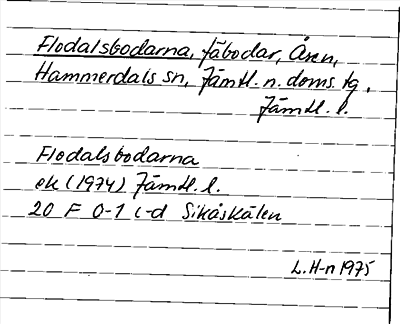 Flodalsbodarna, fäbodar, Åsen,
Hammerdals sn, Jämtl. n. doms. tg,
Jämtl. l.
Flodalsbodarna
ek (1974) Jämtl. l.
20 F 0-1 c-d Sikåskälen
L. H-n 1975